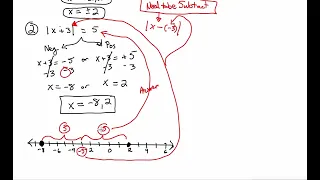 x = ±2
Need to be Subtract
② |x+3| = 5
|x-(-3)|
Neg Pos
x+3 = -5 or x+3 = +5
-3 -3 -3 -3
x = -8 or x = 2
Answer
x = -8, 2
5 -5
-8 -6 -4 -3 -2 0 2 4 6